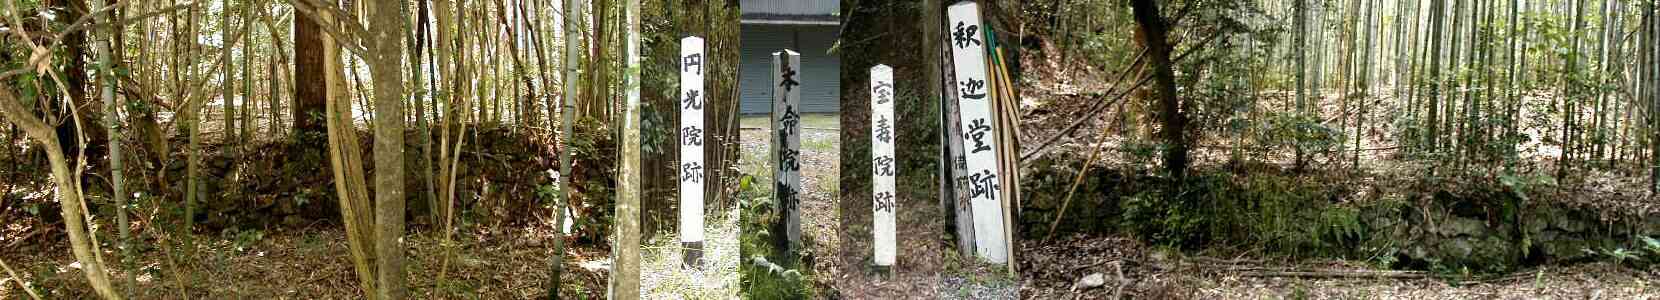 円光院跡
本命院跡
宝寿院跡
釈迦堂跡